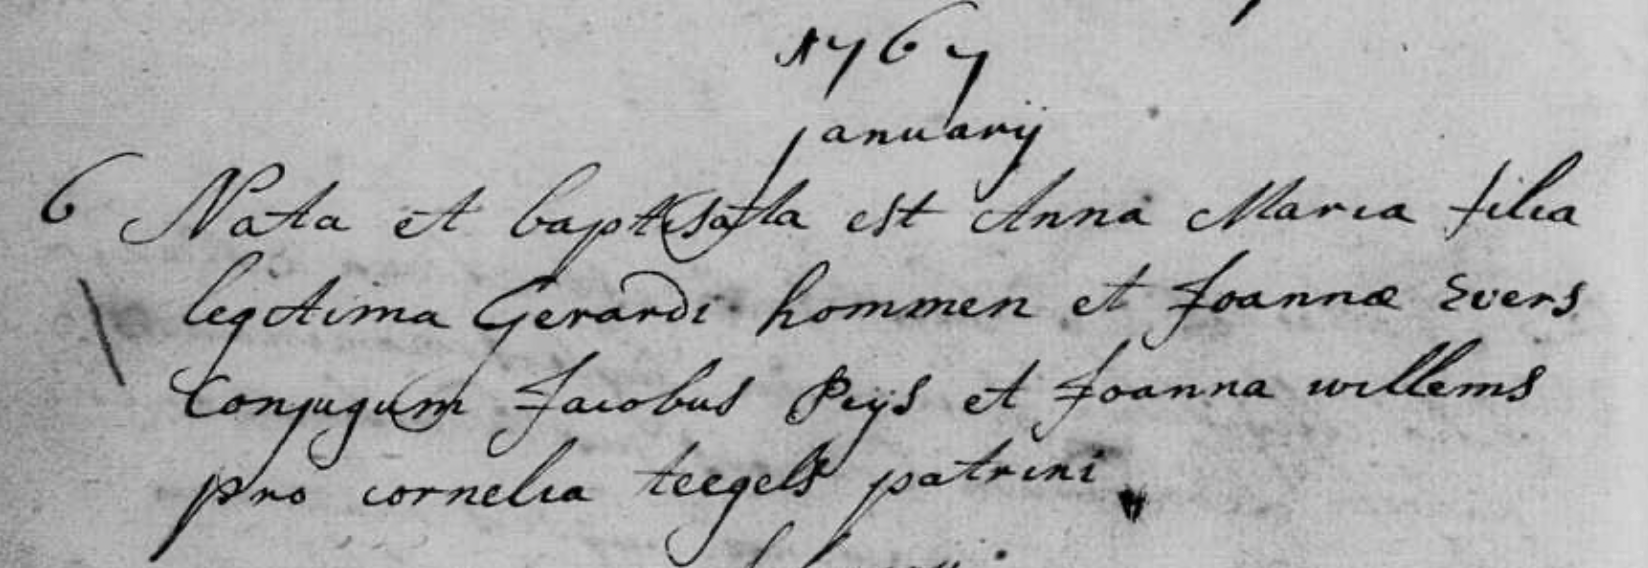 1767
januarij
6 Nata et baptisata est Anna Maria filia
legitima Gerardi hommen et Joannæ Evers
Conjugum Jacobus Peijs et Joanna willems
pro cornelia teegels patrini